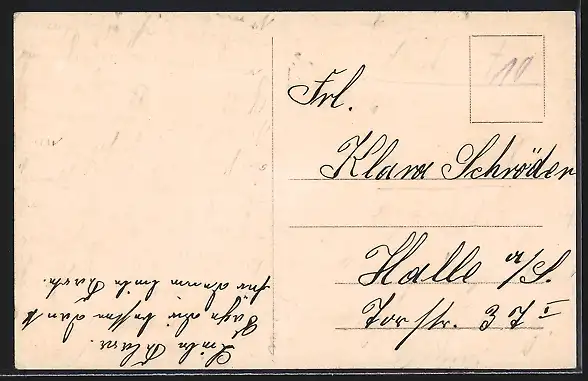 Frl.
Klara Schröder
Halle a/S.
Torstr. 37 I
Liebe Klara.
Sage dir besten Dank
für deine liebe Karte.